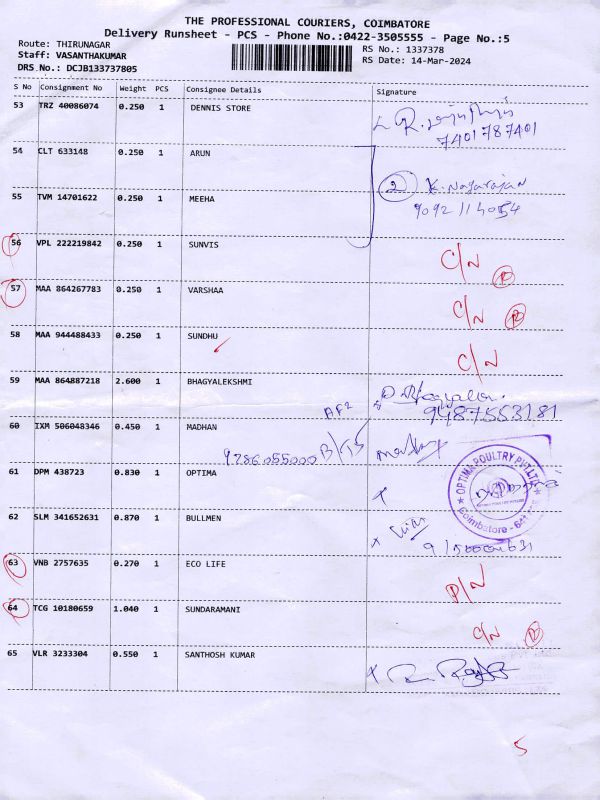 THE PROFESSIONAL COURIERS, COIMBATORE
Delivery Runsheet - PCS - Phone No.:0422-3505555 - Page No.:5
Route: THIRUNAGAR
RS No.: 1337378
Staff: VASANTHAKUMAR
RS Date: 14-Mar-2024
DRS No.: DCJB133737805
S No Consignment No Weight PCS Consignee Details Signature
53 TRZ 40086074 0.250 1 DENNIS STORE
7401787401
54 CLT 633148 0.250 1 ARUN
2 K. Nagarajan
55 TVM 14701622 0.250 1 MEEHA
9092114054
56 VPL 222219842 0.250 1 SUNVIS C/N R
57 MAA 864267783 0.250 1 VARSHAA C/N R
58 MAA 944488433 0.250 1 SUNDHU C/N
59 MAA 864887218 2.600 1 BHAGYALEKSHMI
9487553181
60 IXM 506048346 0.450 1 MADHAN
9286055000
61 DPM 438723 0.830 1 OPTIMA
OPTIMA POULTRY PVT.LTD
Coimbatore - 641
62 SLM 341652631 0.870 1 BULLMEN
63 VNB 2757635 0.270 1 ECO LIFE D/N
64 TCG 10180659 1.040 1 SUNDARAMANI C/N R
65 VLR 3233304 0.550 1 SANTHOSH KUMAR
5